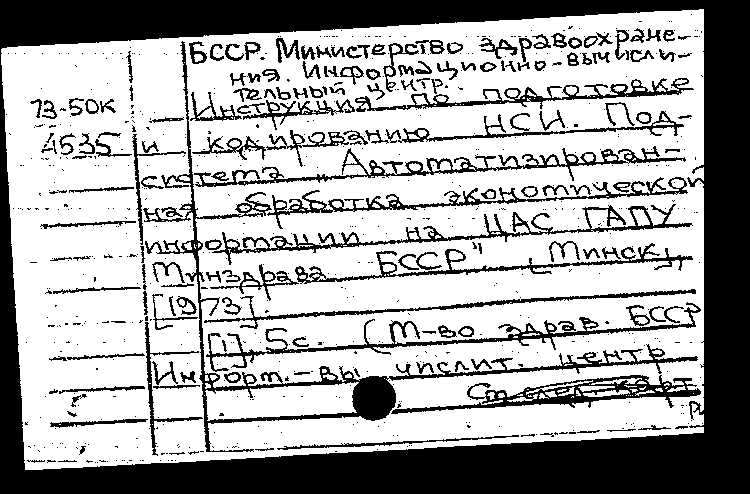 БССР. Министерство здравоохране-
ния. Информационно-вычисли-
тельный центр.
73-50к Инструкция по подготовке
4535 и кодированию НСИ. Под-
система „Автоматизирован-
ная обработка экономической
информации на ЦАС ГАПУ
Минздрава БССР" [Минск],
[1973].
[1], 5с. (М-во здрав. БССР
Информ.-вычислит. центр
См след. карт